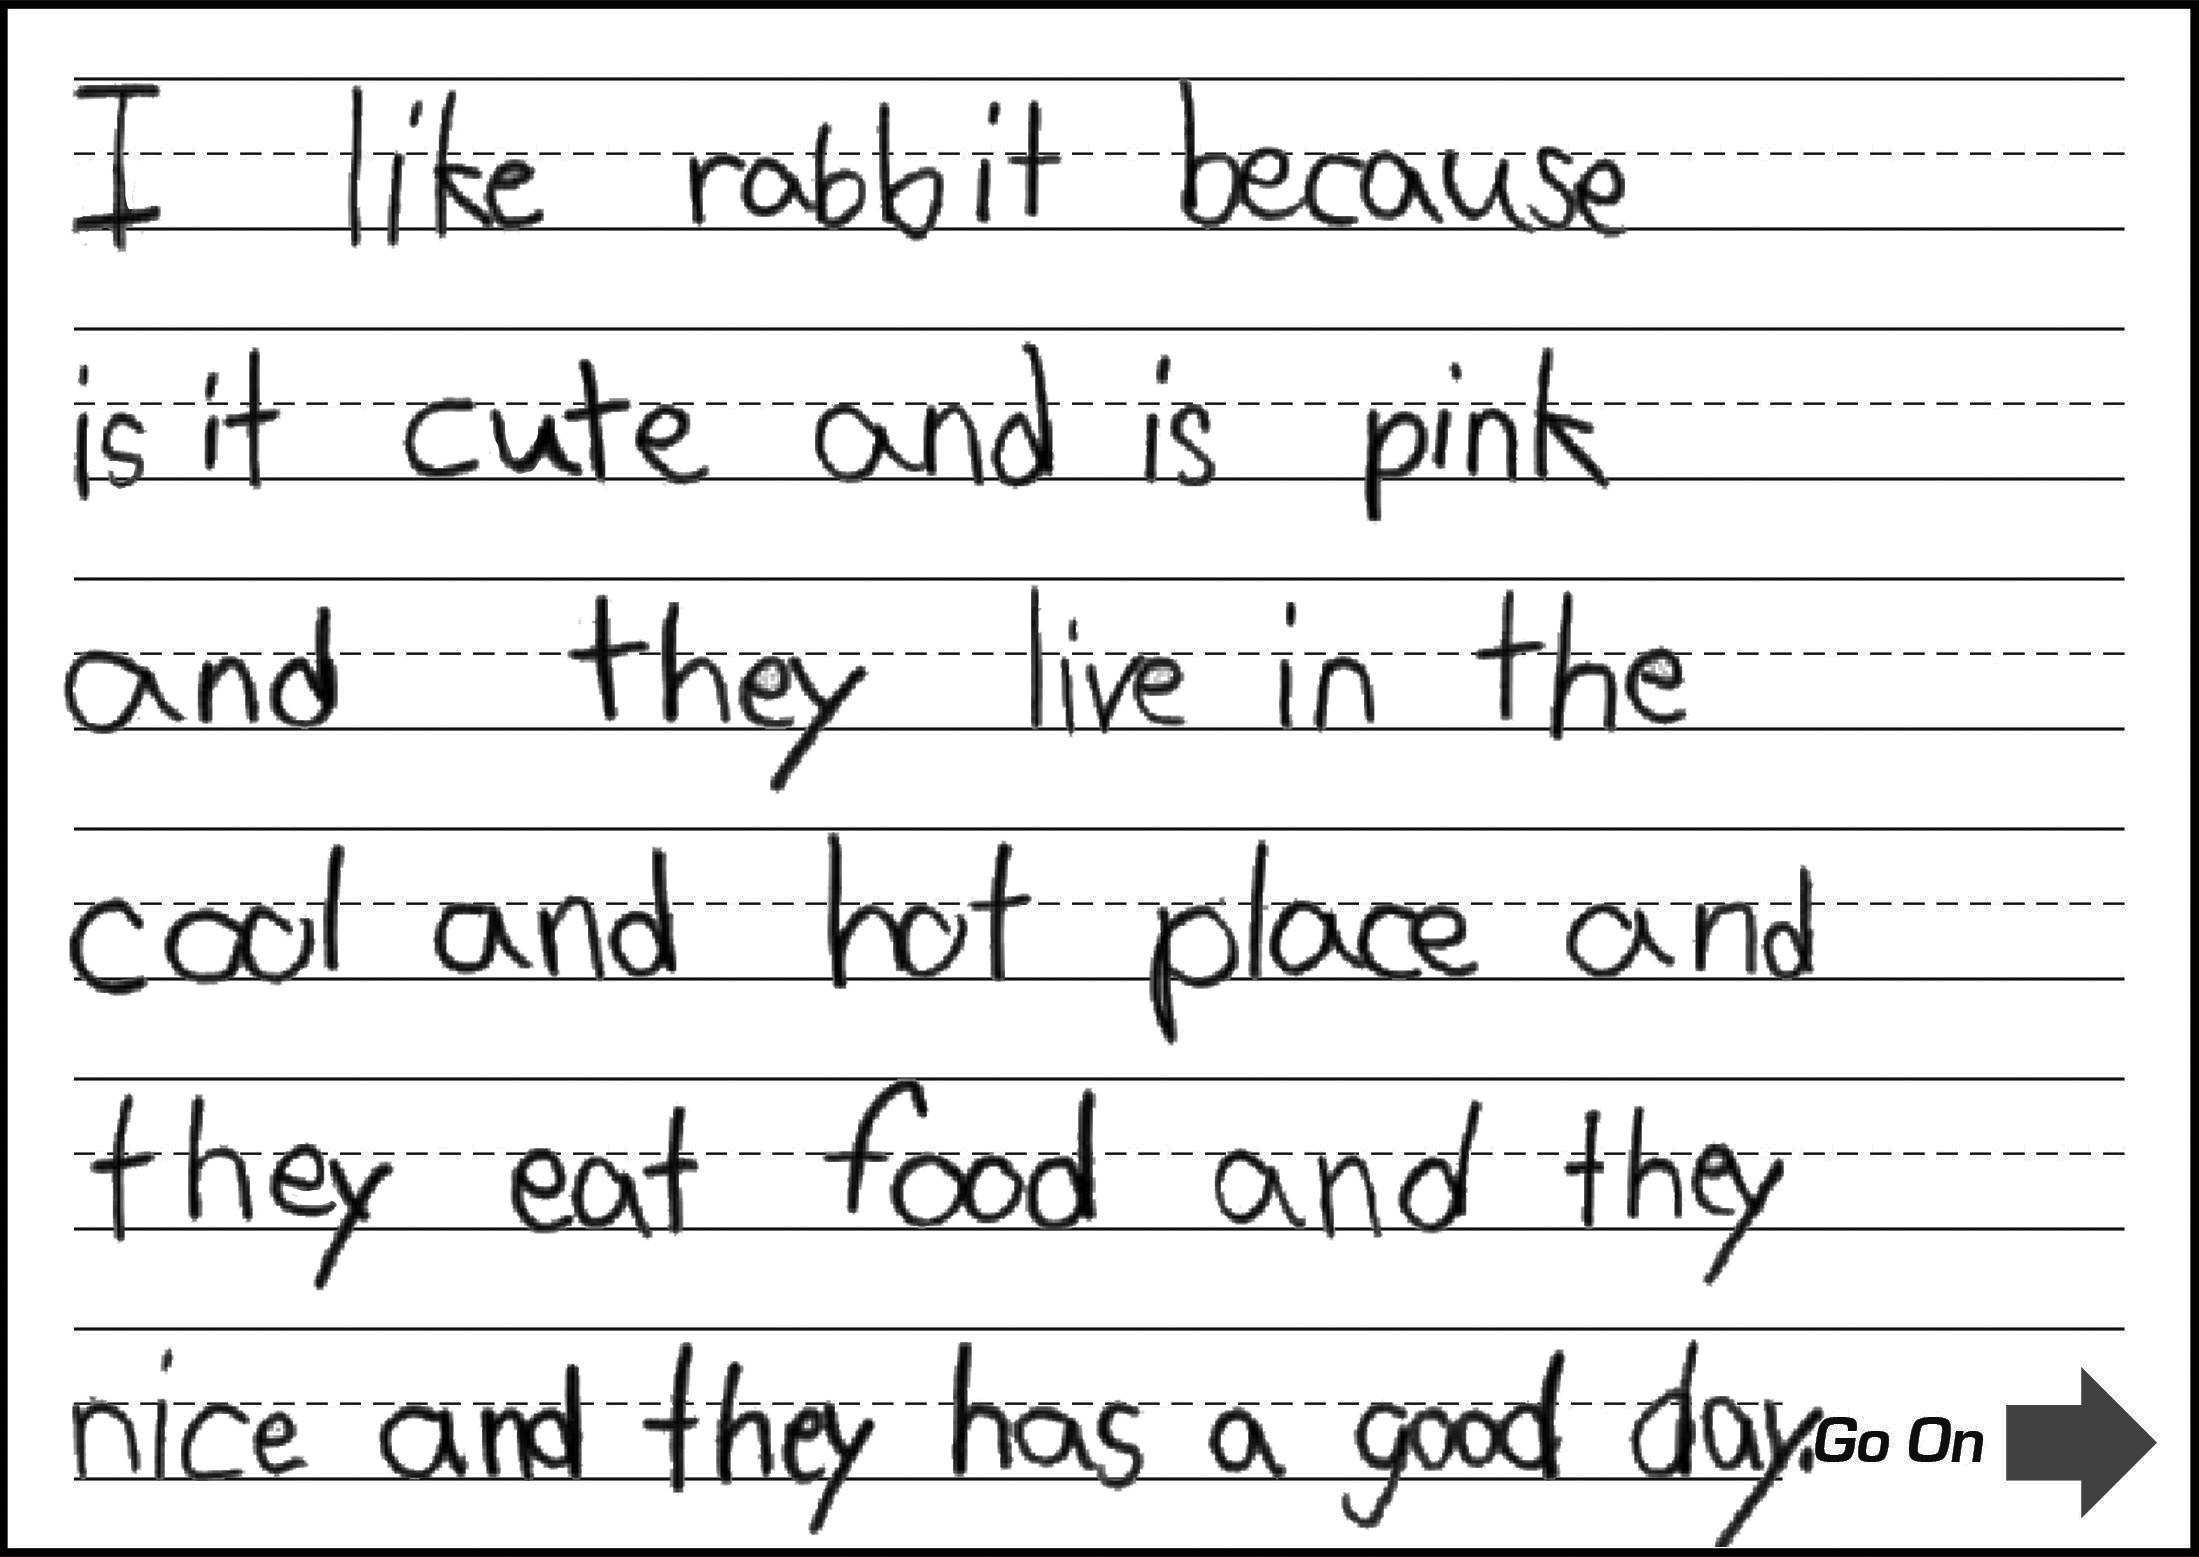 I like rabbit because
is it cute and is pink
and they live in the
cool and hot place and
they eat food and they
nice and they has a good day.
Go On